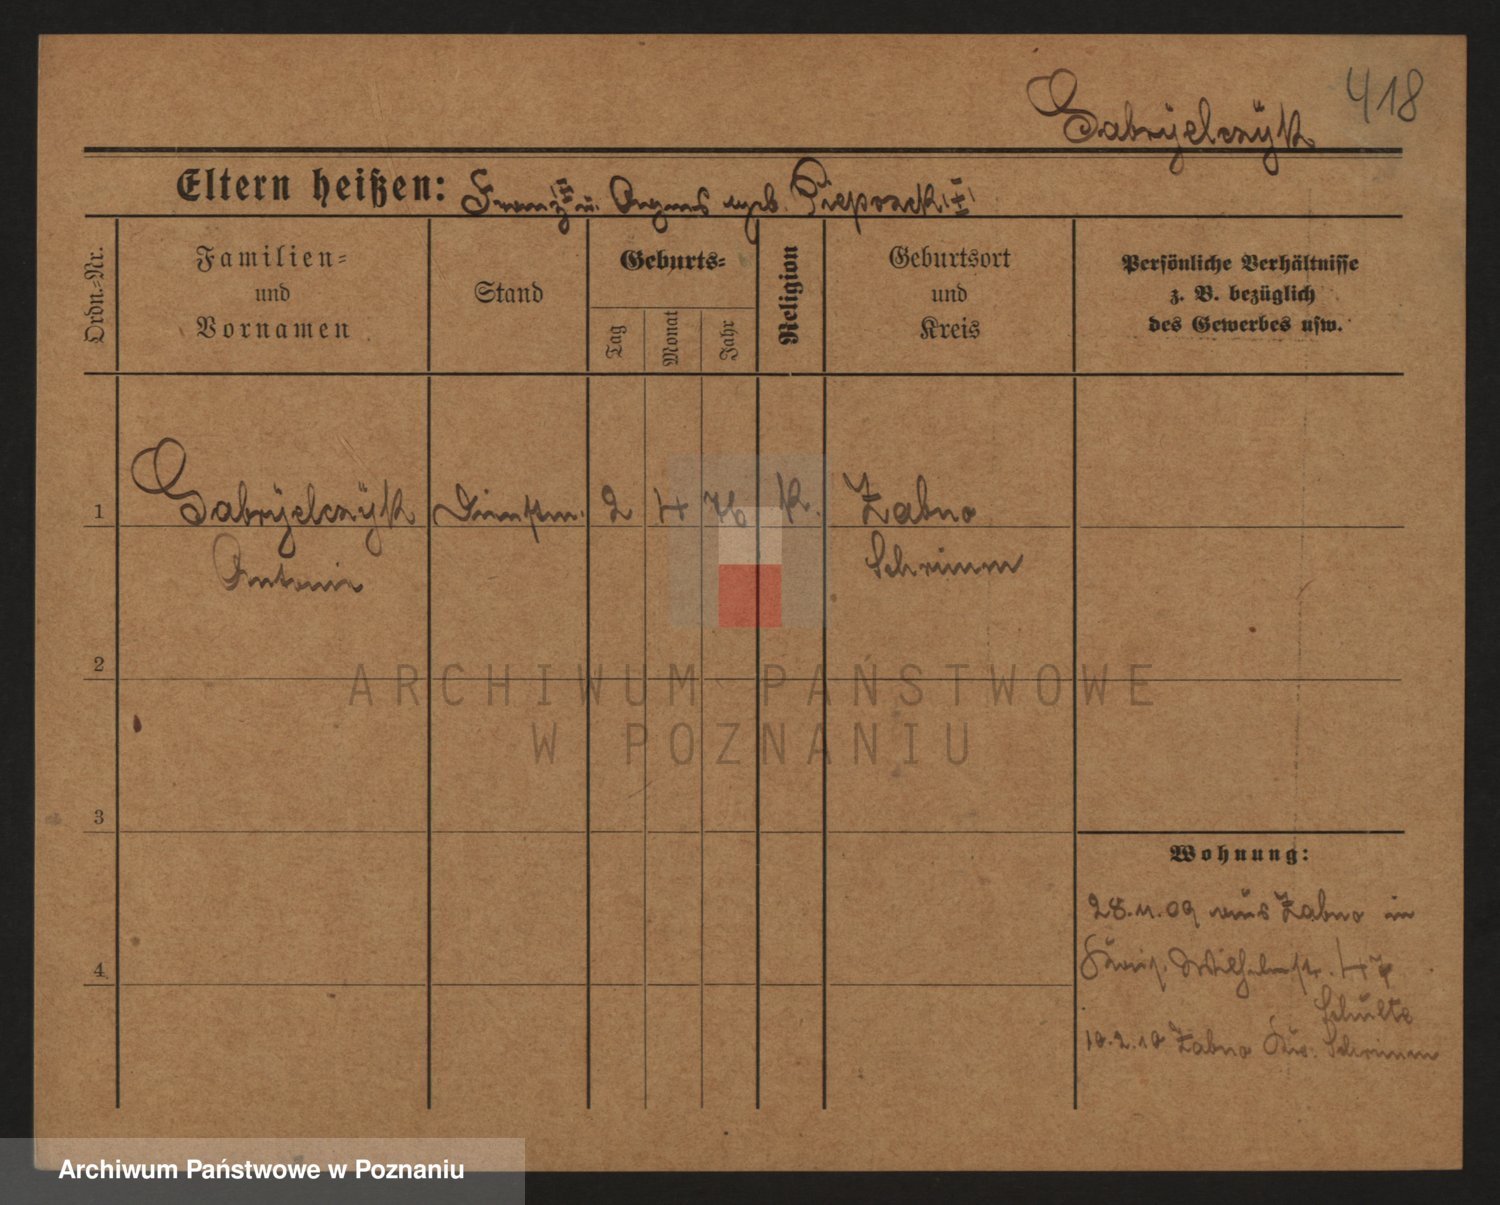 418
Gabryelczyk
Eltern heißen: Franz u. Agnes geb.
Ordn.-Nr.
Familien-
und
Vornamen
Stand
Geburts-
Tag
Monat
Jahr
Religion
Geburtsort
und
Kreis
Persönliche Verhältnisse
z. B. bezüglich
des Gewerbes usw.
1 Gabryelczyk Dienstm. 2 4 76 K. Zabno
Antonie Schrimm
2
ARCHIWUM PAŃSTWOWE
W POZNANIU
3
Wohnung:
28.11.09 aus Zabno in
4
Schulte
10.2.10 Zabno Krs. Schrimm
Archiwum Państwowe w Poznaniu